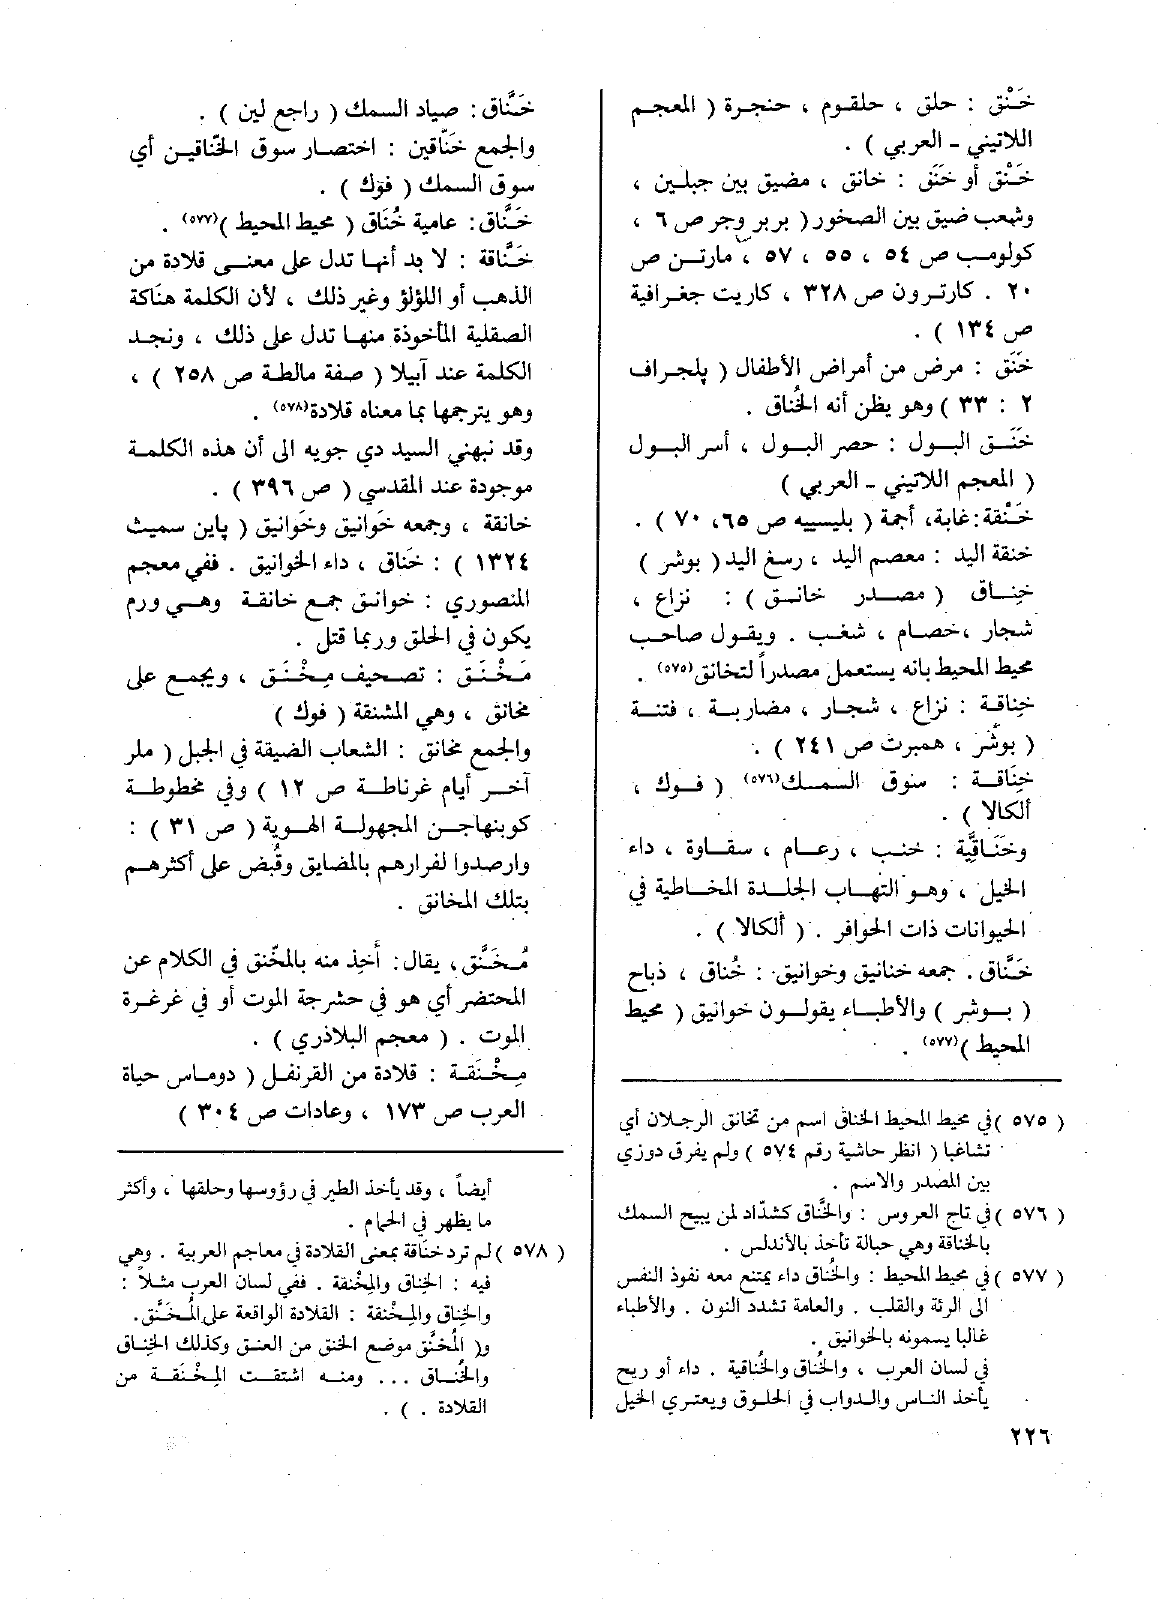 خَنْق : حلق ، حلقوم ، حنجرة ( المعجم
اللاتيني - العربي ) .
خَنْق أو خَنَق : خانق ، مضيق بين جبلين ،
وشعب ضيق بين الصخور ( بربر وجر ص ٦ ،
كولومب ص ٥٤ ، ٥٥ ، ٥٧ ، مارتن ص
٢٠ . كارترون ص ٣٢٨ ، كاريت جغرافية
ص ١٣٤ ) .
خَنَق : مرض من أمراض الأطفال ( پلجراف
٢ : ٣٣ ) وهو يظن أنه الخُناق .
خَنَق البول : حصر البول ، أسر البول
( المعجم اللاتيني - العربي )
خَنْقة : غابة ، أجمة ( بليسييه ص ٦٥ ، ٧٠ ) .
خنقة اليد : معصم اليد ، رسغ اليد ( بوشر )
خِناق ( مصدر خانق ) : نزاع ،
شجار ، خصام ، شغب . ويقول صاحب
محيط المحيط بانه يستعمل مصدراً لتخانق(٥٧٥) .
خِناقة : نزاع ، شجار ، مضاربة ، فتنة
( بوشر ، همبرت ص ٢٤١ ) .
خِنَاقة : سوق السمك(٥٧٦) ( فوك ،
ألكالا ) .
وخَنَاقيَّة : خنب ، رعام ، سقاوة ، داء
الخيل ، وهو التهاب الجلدة المخاطية في
الحيوانات ذات الحوافر . ( ألكالا ) .
خَنَّاق . جمعه خنانيق وخوانيق : خُناق ، ذباح
( بوشر ) والأطباء يقولون خوانيق ( محيط
المحيط )(٥٧٧) .
( ٥٧٥ ) في محيط المحيط الخناق اسم من تخانق الرجلان أي
تشاغبا ( انظر حاشية رقم ٥٧٤ ) ولم يفرق دوزي
بين المصدر والاسم .
( ٥٧٦ ) في تاج العروس : والخَنَّاق كشدّاد لمن يبيح السمك
بالخناقة وهي حبالة تأخذ بالأندلس .
( ٥٧٧ ) في محيط المحيط : والخُناق داء يمتنع معه نفوذ النفس
الى الرئة والقلب . والعامة تشدد النون . والأطباء
غالبا يسمونه بالخوانيق .
في لسان العرب ، والخُناق والخُناقية . داء أو ريح
يأخذ الناس والدواب في الحلوق ويعتري الخيل
٢٢٦
خَنَّاق : صياد السمك ( راجع لين ) .
والجمع خَنّاقين : اختصار سوق الخنّاقين أي
سوق السمك ( فوك ) .
خَنَّاق : عامية خُنَاق ( محيط المحيط )(٥٧٧) .
خَنَّاقة : لا بد أنها تدل على معنى قلادة من
الذهب أو اللؤلؤ وغير ذلك ، لأن الكلمة هنَاكة
الصقلية المأخوذة منها تدل على ذلك ، ونجد
الكلمة عند آبيلا ( صفة مالطة ص ٢٥٨ ) ،
وهو يترجمها بما معناه قلادة(٥٧٨) .
وقد نبهني السيد دي جويه الى أن هذه الكلمة
موجودة عند المقدسي ( ص ٣٩٦ ) .
خانقة ، وجمعه خَوانيق وخَوانيق ( پاين سميث
١٣٢٤ ) : خَناق ، داء الخوانيق . ففي معجم
المنصوري : خوانق جمع خانقة وهي ورم
يكون في الحلق وربما قتل .
مَخْنَق : تصحيف مِخْنَق ، ويجمع على
مخانق ، وهي المشنقة ( فوك )
والجمع مخانق : الشعاب الضيقة في الجبل ( ملر
آخر أيام غرناطة ص ١٢ ) وفي مخطوطة
كوبنهاجن المجهولة الهوية ( ص ٣١ ) :
وارصدوا لفرارهم بالمضايق وقُبض على أكثرهم
بتلك المخانق .
مُخَنَّق ، يقال : أُخِذ منه بالمخّنق في الكلام عن
المحتضر أي هو في حشرجة الموت أو في غرغرة
الموت . ( معجم البلاذري ) .
مِخْنَقة : قلادة من القرنفل ( دوماس حياة
العرب ص ١٧٣ ، وعادات ص ٣٠٤ )
أيضاً ، وقد يأخذ الطير في رؤوسها وحلقها ، وأكثر
ما يظهر في الحمام .
( ٥٧٨ ) لم ترد خناقة بمعنى القلادة في معاجم العربية . وهي
فيه : الخِناق والمِخْنقة . ففي لسان العرب مثلاً :
والخِناق والمِخْنقة : القلادة الواقعة على المُخَنَّق .
و( المُخنَّق موضع الخنق من العنق وكذلك الخِناق
والخُناق ... ومنه اشتقت المِخْنَقة من
القلادة . ) .